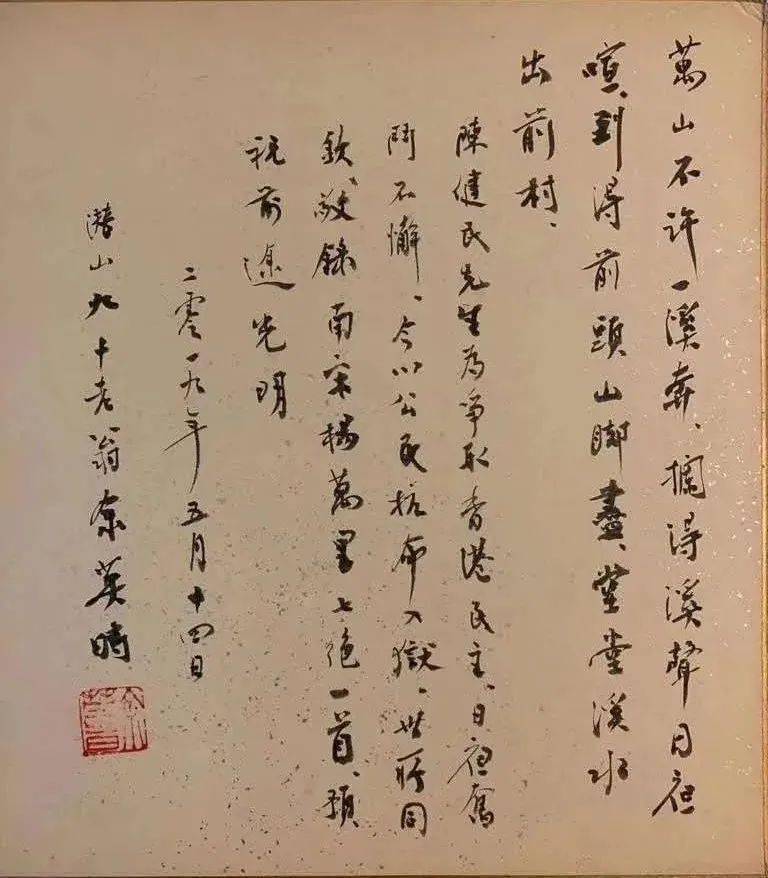 萬山不許一溪奔、攔得溪聲日夜
喧、到得前頭山腳盡、堂堂溪水
出前村、
陳健民先生為爭取香港民主、日夜奮
鬥不懈、今以公民抗命入獄、世所同
欽、敬錄南宋楊萬里七絕一首、預
祝前途光明
二零一九年五月十四日
潛山九十老翁余英時